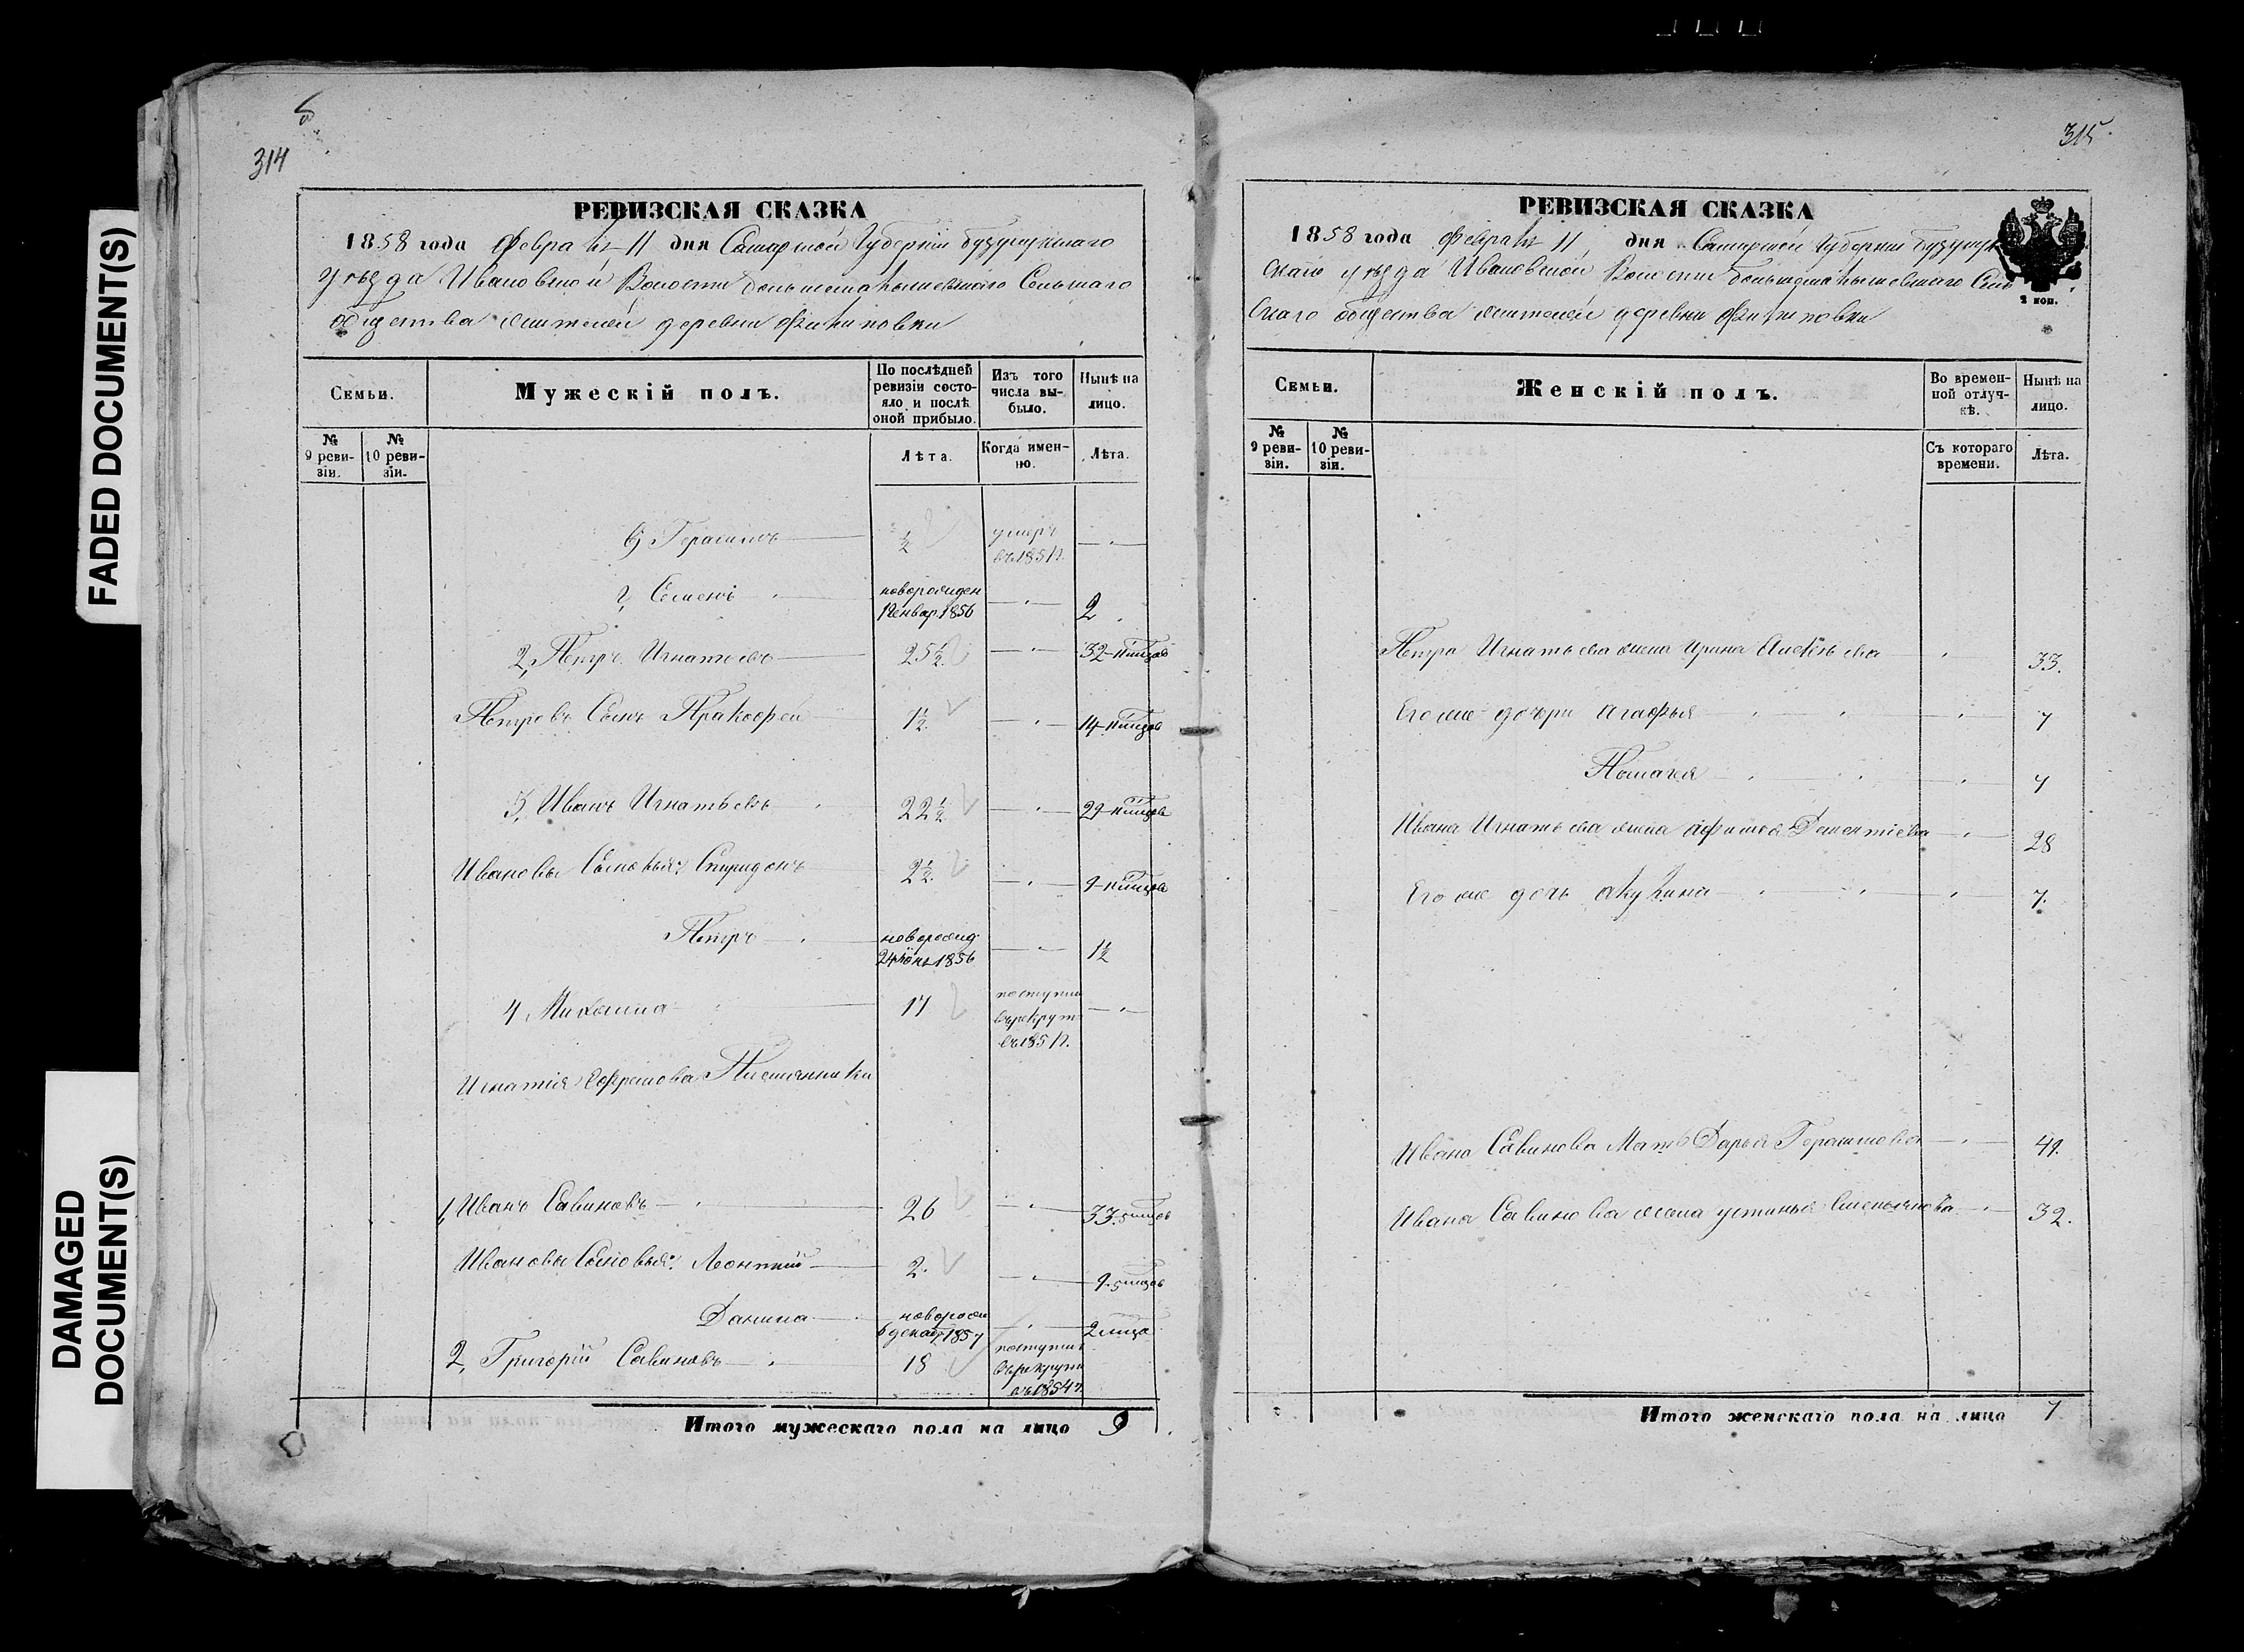 FADED DOCUMENT(S)
DAMAGED
DOCUMENT(S)
314
РЕВИЗСКАЯ СКАЗКА
1858 года Февраля 11 дня Самарской Губерніи Бузулукскаго
уѣзда Ивановской Волости Сельскаго
общества жителей деревни Филиповки
Семьи.
Мужескій полъ.
По послѣдней ревизіи состояло и послѣ оной прибыло.
Изъ того числа выбыло.
Нынѣ на лицо.
№ 9 ревизіи.
№ 10 ревизіи.
Лѣта.
Когда именно.
Лѣта.
6, Герасимъ ½ умеръ въ 185 г.
Семенъ новорожден Январ. 1856 2
2, Петръ Игнатьевъ 25½ 32
Петровъ Сынъ Пракофей 1½
3, Иванъ Игнатьевъ 22½ 29
Ивановы Сыновья: Спиридонъ 2½ 9
Петръ новорожд. 1856 1½
4, Микаила 17 поступил въ рекрут въ 185 г.
Игнатія Ефремова Племянники
1, Иванъ Савиновъ 26 33
Ивановы Сыновья: Леонтий 2. 9
Данила новорож 6 декаб. 1857 2 мца
2, Григорій Савиновъ 18 поступил въ рекруты въ 1854 г.
Итого мужескаго пола на лицо 9
315
РЕВИЗСКАЯ СКАЗКА
1858 года Февраля 11 дня Самарской Губерніи Бузулук
скаго уѣзда Ивановской Волости Сель
скаго общества жителей деревни Филиповки
2 коп.
Семьи.
Женскій полъ.
Во временной отлучкѣ.
Нынѣ на лицо.
№ 9 ревизіи.
№ 10 ревизіи.
Съ котораго времени.
Лѣта.
Петра Игнатьева жена Ирина Алексѣева 33.
Его же дочери Агафья 7
Пелагея
Ивана Игнатьева жена Афимья Дементіева 28
Его же дочь Акулина 7.
Ивана Савинова Мать Дарья Герасимова 49.
Ивана Савинова жена Устинья 32.
Итого женскаго пола на лицо 7